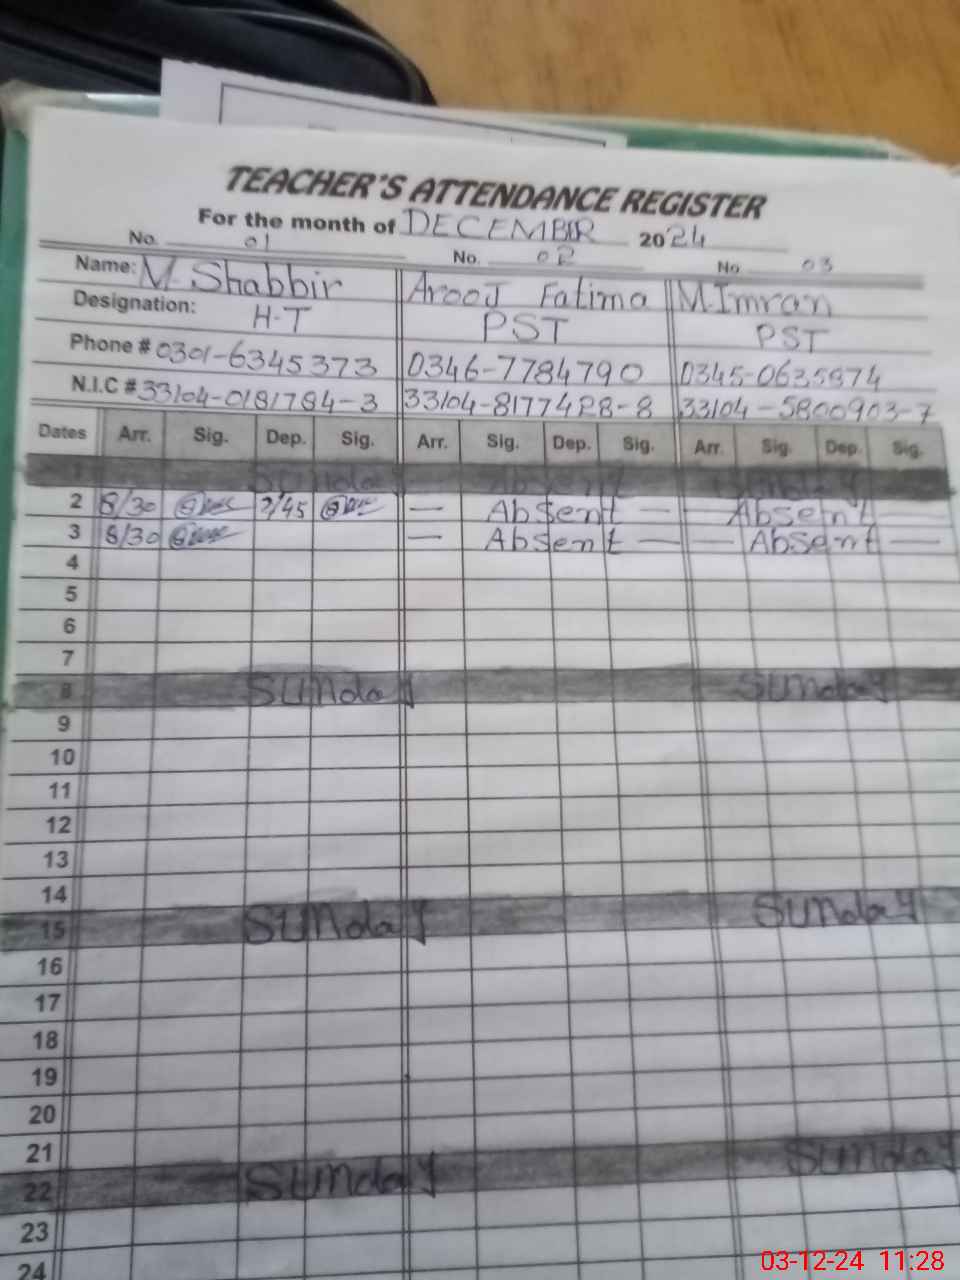 TEACHER'S ATTENDANCE REGISTER
For the month of DECEMBER 2024
No. 01 No. 02 No 03
Name: M. Shabbir Arooj Fatima M.Imran
Designation: H-T PST PST
Phone # 0301-6345373 0346-7784790 0345-0635874
N.I.C # 33104-0181784-3 33104-8177428-8 33104-5800903-7
Dates Arr. Sig. Dep. Sig. Arr. Sig. Dep. Sig. Arr. Sig. Dep. Sig.
1 Sunday Absent Sunday
2 8/30 2/45 — Absent — — Absent
3 8/30 — Absent — — Absent —
4
5
6
7
8 Sunday Sunday
9
10
11
12
13
14
15 Sunday Sunday
16
17
18
19
20
21
22 Sunday Sunday
23
24
03-12-24 11:28